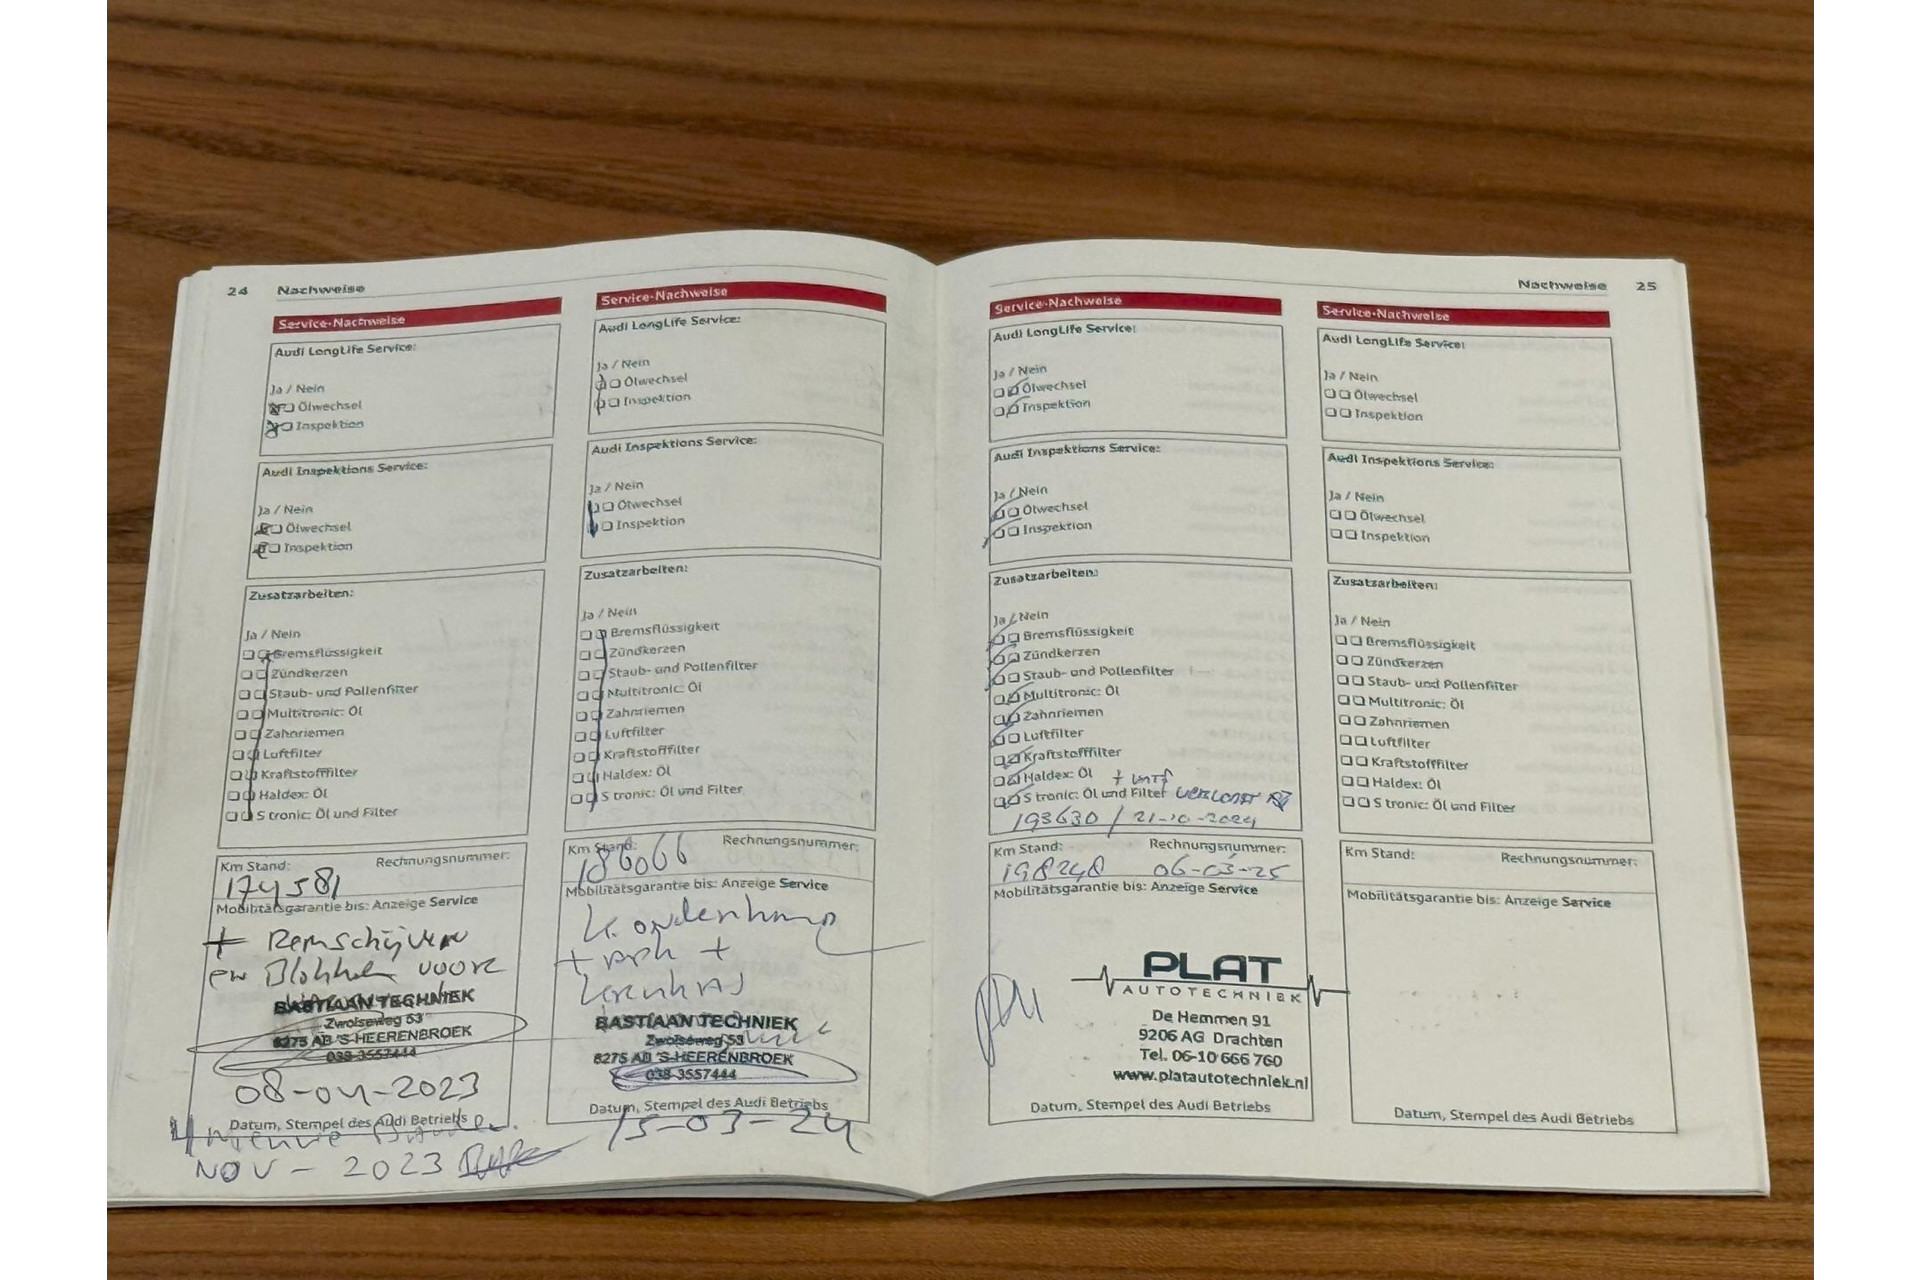 24 Nachweise
Service-Nachweise
Audi LongLife Service:
Ja / Nein
Ölwechsel
Inspektion
Audi Inspektions Service:
Ja / Nein
Ölwechsel
Inspektion
Zusatzarbeiten:
Ja / Nein
Bremsflüssigkeit
Zündkerzen
Staub- und Pollenfilter
Multitronic: Öl
Zahnriemen
Luftfilter
Kraftstofffilter
Haldex: Öl
S tronic: Öl und Filter
Km Stand: Rechnungsnummer:
174581
Mobilitätsgarantie bis: Anzeige Service
+ Remschijven
en Blokken voor
BASTIAAN TECHNIEK
Zwolseweg 53
8275 AB 'S-HEERENBROEK
038-3557444
08-04-2023
Datum, Stempel des Audi Betriebs
NOV - 2023
Service-Nachweise
Audi LongLife Service:
Ja / Nein
Ölwechsel
Inspektion
Audi Inspektions Service:
Ja / Nein
Ölwechsel
Inspektion
Zusatzarbeiten:
Ja / Nein
Bremsflüssigkeit
Zündkerzen
Staub- und Pollenfilter
Multitronic: Öl
Zahnriemen
Luftfilter
Kraftstofffilter
Haldex: Öl
S tronic: Öl und Filter
Km Stand: Rechnungsnummer:
186066
Mobilitätsgarantie bis: Anzeige Service
BASTIAAN TECHNIEK
Zwolseweg 53
8275 AB 'S-HEERENBROEK
038-3557444
Datum, Stempel des Audi Betriebs
15-03-24
Nachweise 25
Service-Nachweise
Audi LongLife Service:
Ja / Nein
Ölwechsel
Inspektion
Audi Inspektions Service:
Ja / Nein
Ölwechsel
Inspektion
Zusatzarbeiten:
Ja / Nein
Bremsflüssigkeit
Zündkerzen
Staub- und Pollenfilter
Multitronic: Öl
Zahnriemen
Luftfilter
Kraftstofffilter
Haldex: Öl
S tronic: Öl und Filter
193630 / 21-10-2024
Km Stand: Rechnungsnummer:
198248 06-03-25
Mobilitätsgarantie bis: Anzeige Service
PLAT
AUTOTECHNIEK
De Hemmen 91
9206 AG Drachten
Tel. 06-10 666 760
www.platautotechniek.nl
Datum, Stempel des Audi Betriebs
Service-Nachweise
Audi LongLife Service:
Ja / Nein
Ölwechsel
Inspektion
Audi Inspektions Service:
Ja / Nein
Ölwechsel
Inspektion
Zusatzarbeiten:
Ja / Nein
Bremsflüssigkeit
Zündkerzen
Staub- und Pollenfilter
Multitronic: Öl
Zahnriemen
Luftfilter
Kraftstofffilter
Haldex: Öl
S tronic: Öl und Filter
Km Stand: Rechnungsnummer:
Mobilitätsgarantie bis: Anzeige Service
Datum, Stempel des Audi Betriebs